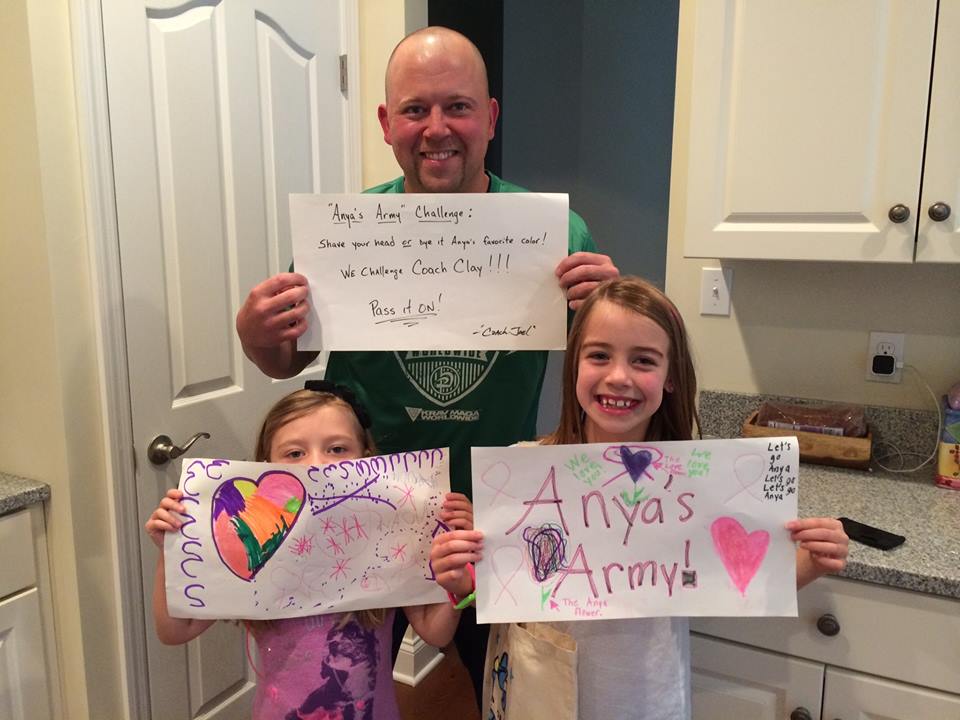 "Anya's Army" Challenge:
Shave your head or Dye it Anya's favorite color!
We Challenge Coach Clay!!!
Pass it ON!
-"Coach Joel"
WORLDWIDE
KRAV MAGA
WORLDWIDE
We
love
you
The Love
We
love
you
Let's
go
Anya
Let's go
Let's
Anya go
Anya's
Army!
The Anya
flower.